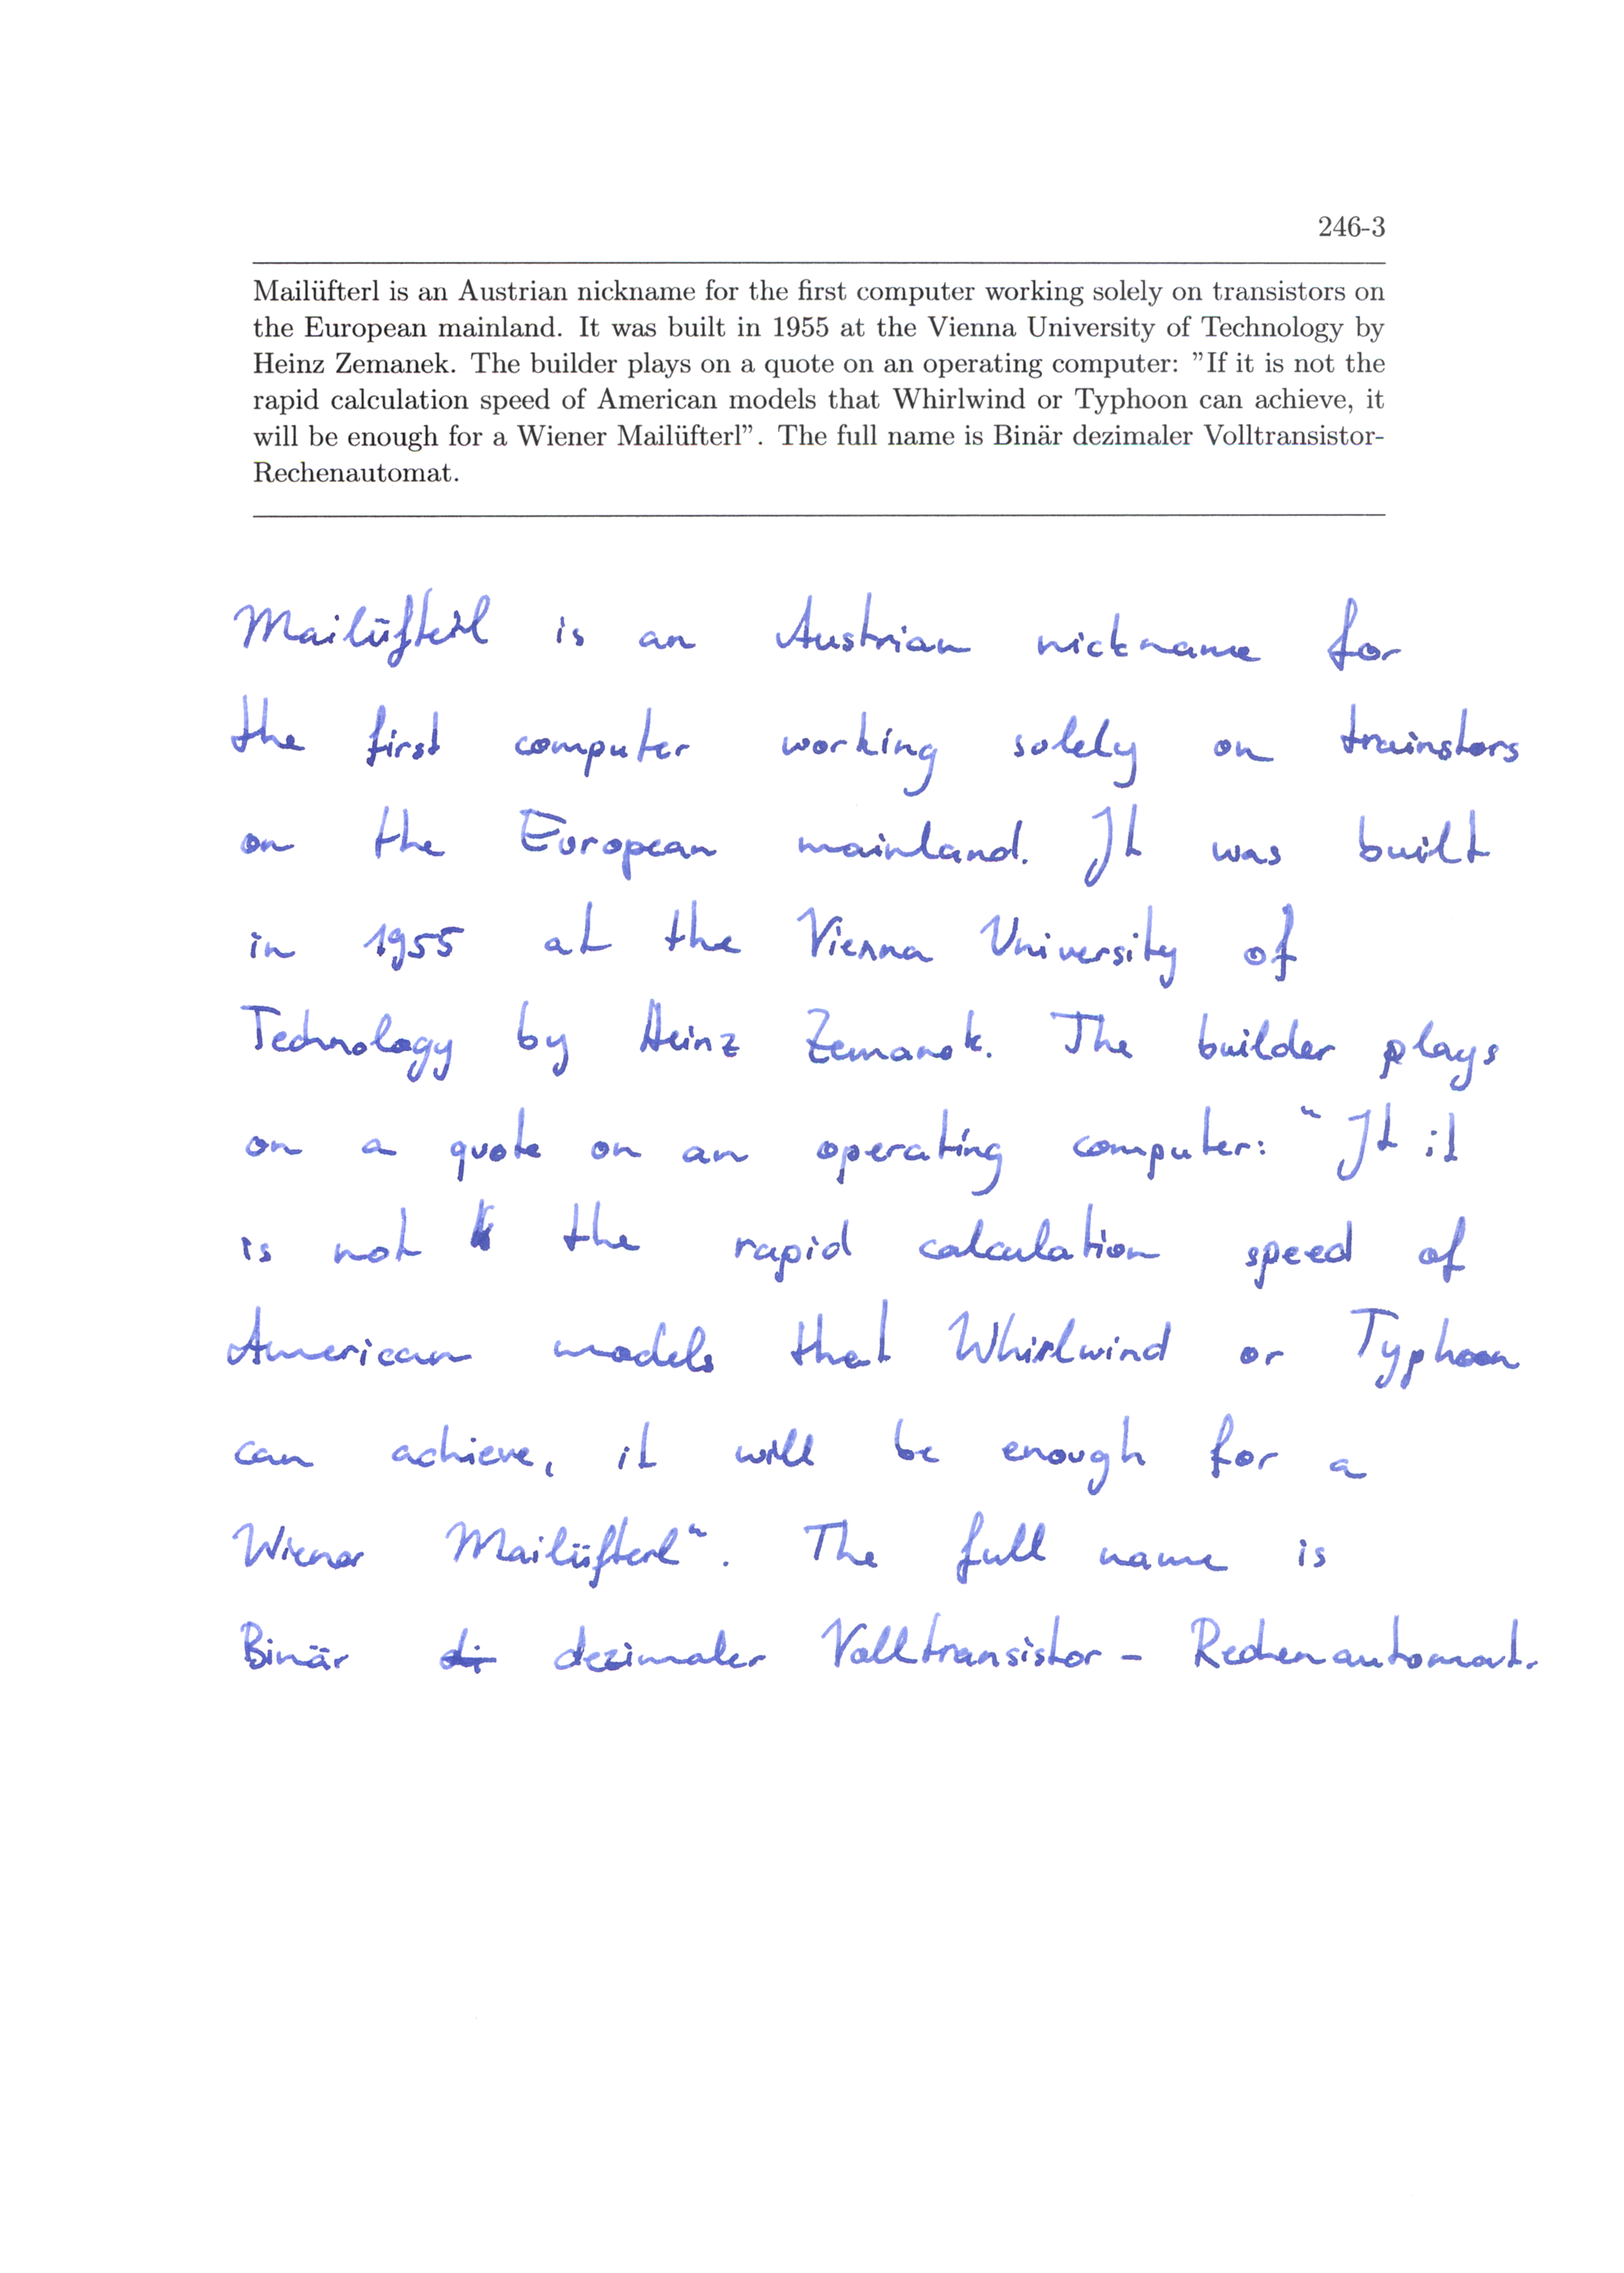 246-3
Mailüfterl is an Austrian nickname for the first computer working solely on transistors on
the European mainland. It was built in 1955 at the Vienna University of Technology by
Heinz Zemanek. The builder plays on a quote on an operating computer: ”If it is not the
rapid calculation speed of American models that Whirlwind or Typhoon can achieve, it
will be enough for a Wiener Mailüfterl”. The full name is Binär dezimaler Volltransistor-
Rechenautomat.
Mailüfterl is an Austrian nickname for
the first computer working solely on trainstors
on the European mainland. It was built
in 1955 at the Vienna University of
Technology by Heinz Zemanek. The builder plays
on a quote on an operating computer: “It it
is not the rapid calculation speed of
American models that Whirlwind or Typhoon
can achieve, it will be enough for a
Wiener Mailüfterl“. The full name is
Binär di dezimaler Volltransistor - Rechenautomat.